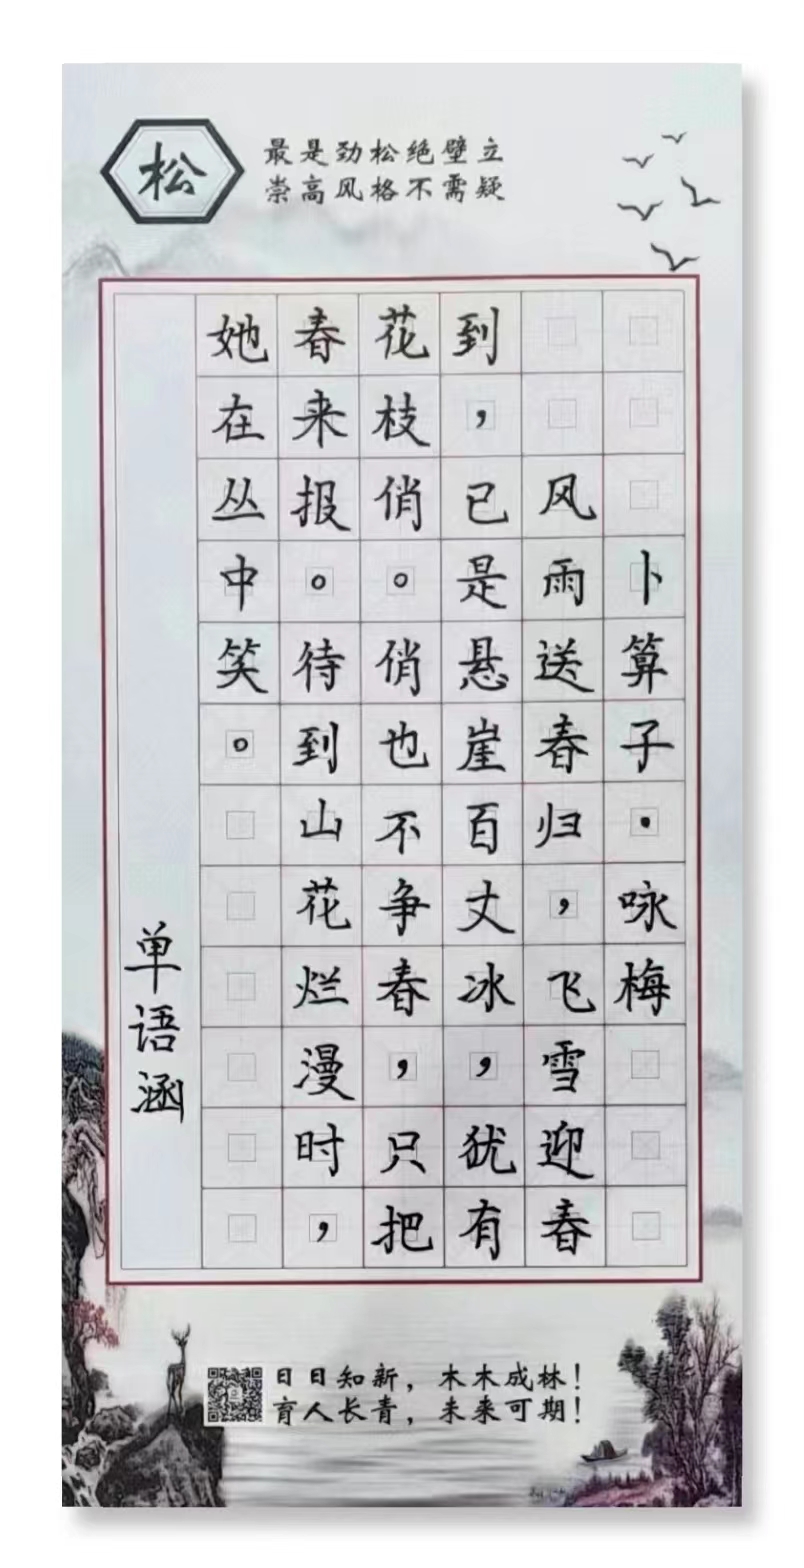 松
最是劲松绝壁立
崇高风格不需疑
卜算子·咏梅
风雨送春归，飞雪迎春
到，已是悬崖百丈冰，犹有
花枝俏。俏也不争春，只把
春来报。待到山花烂漫时，
她在丛中笑。
单语涵
日日知新，木木成林！
育人长青，未来可期！